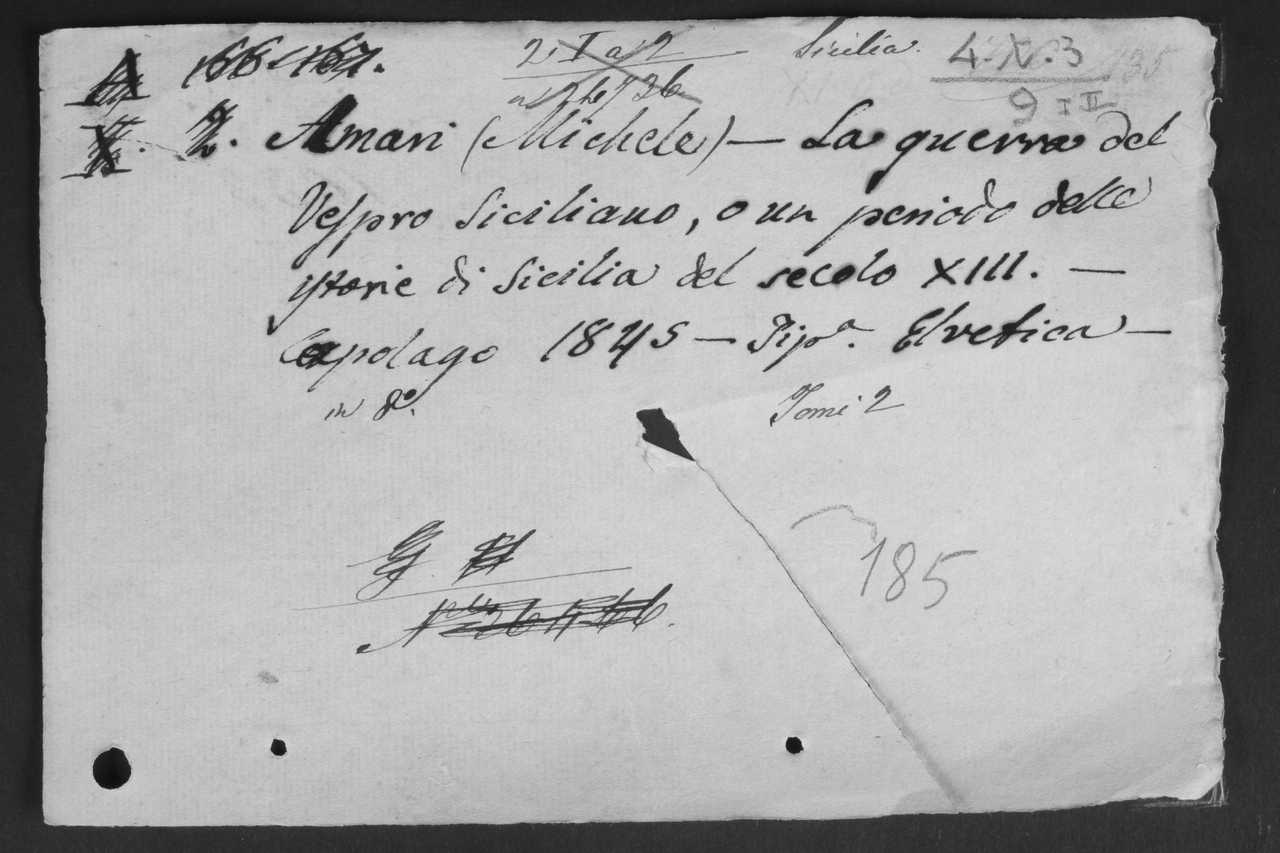 166-167.
Sicilia.
4.XV.3
9 I II
2. Amari (Michele) — La guerra del
Vespro Siciliano, o un periodo delle
istorie di Sicilia del secolo XIII. —
Capolago 1845 — Tip.ª Elvetica —
in 8.º
Tomi 2
185